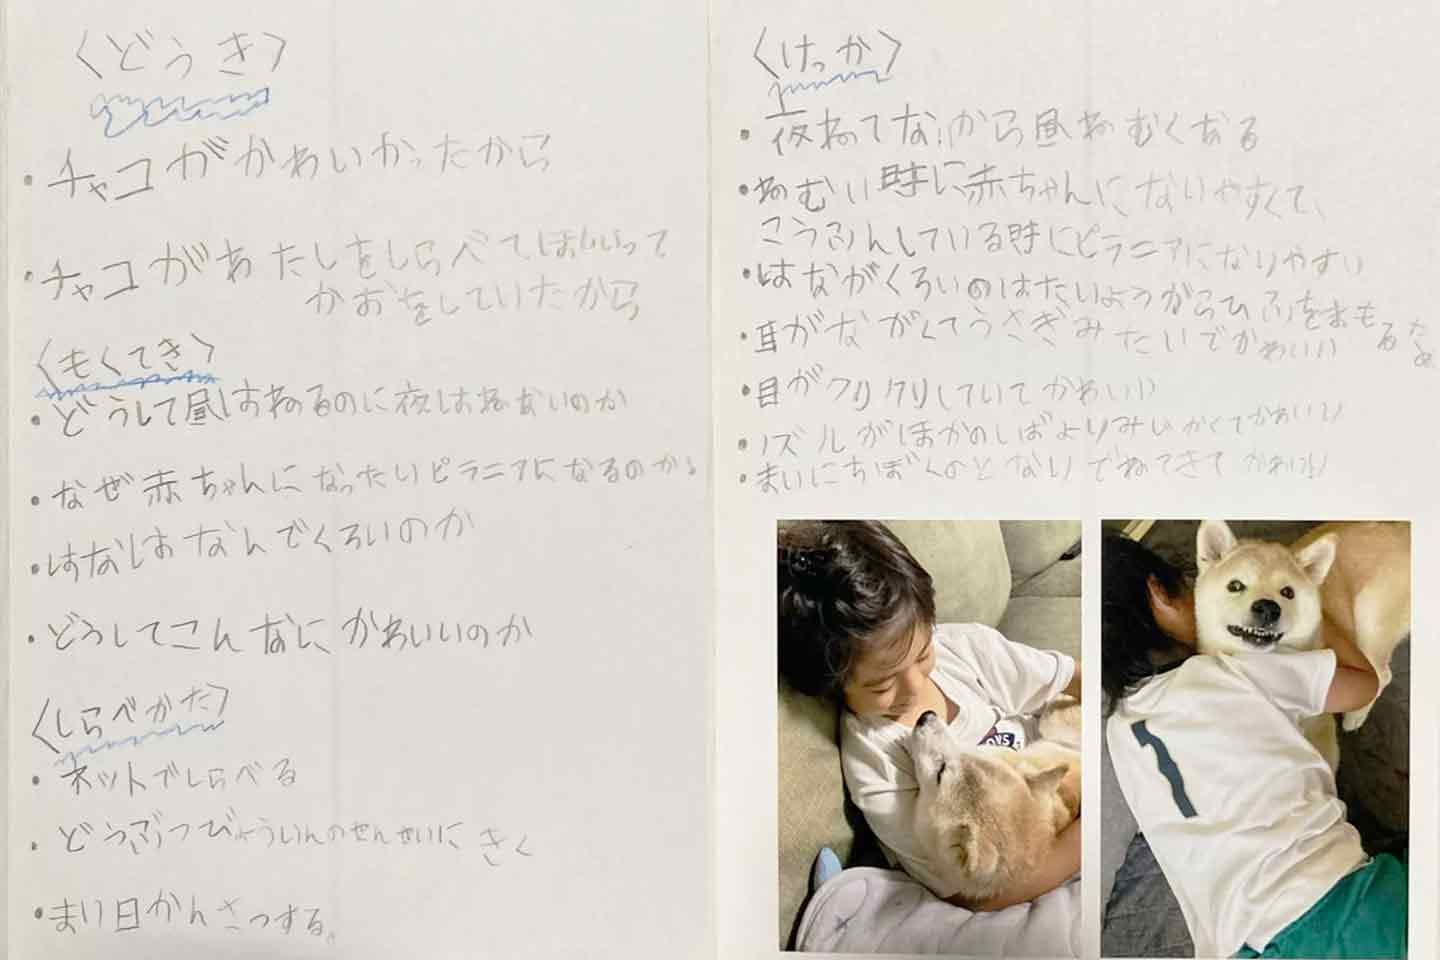 〈どうき〉
・チャコがかわいかったから
・チャコがあたしをしらべてほしいって
かおをしていたから
〈もくてき〉
・どうして昼はねるのに夜はねないのか
・なぜ赤ちゃんになったいピラニアになるのか。
・はなはなんでくろいのか
・どうしてこんなにかわいいのか
〈しらべかた〉
・ネットでしらべる
・どうぶつびょういんのせんせいにきく
・まい日かんさつする。
〈けっか〉
・夜ねてないから昼ねむくなる
・ねむい時に赤ちゃんになりやすくて、
こうふんしている時にピラニアになりやすい
・はながくろいのはたいようからひふをまもるため
・耳がながくてうさぎみたいでかわいい
・目がクリクリしていてかわいい
・ノズルがほかのしばよりみじかくてかわいい
・まいにちぼくのとなりでねてきてかわいい
1